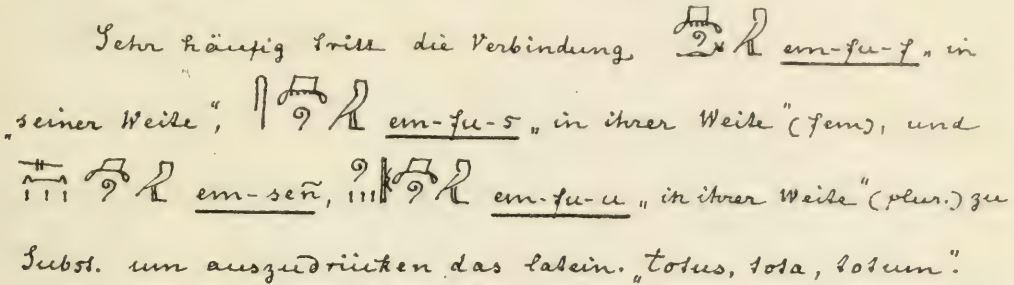 Sehr häufig tritt die Verbindung em-fu-f „in
„seiner Weite“, em-fu-s „in ihrer Weite“ (fem), und
em-señ, em-fu-u „in ihrer Weite“ (plur.) zu
Subst. um auszudrücken das latein. „totus, tota, totum“.